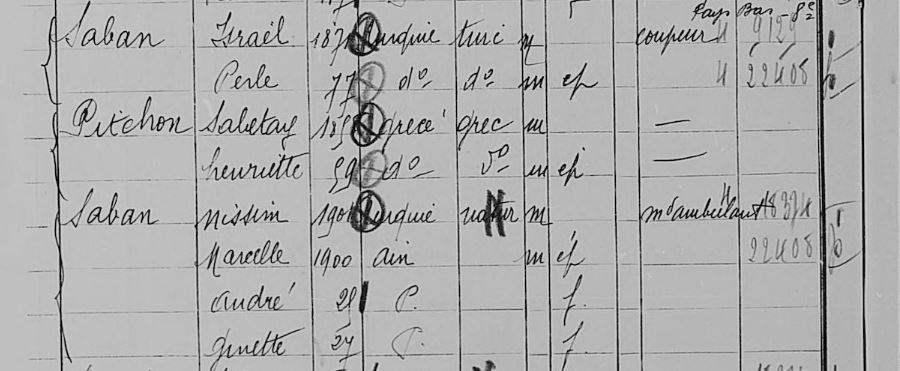 Pays Bas
Saban Israël 187 turquie turc m coupeur 4 9129
Perle 77 do do m ep 4 22408
Pitchon Sabetay 189 grece grec m —
henriette 99 do do m ep —
Saban nissim 1901 turquie natur m md ambulant 18374
Marcelle 1900 ain m ép 22408
andré 28 P. f.
ginette 27 P. f.